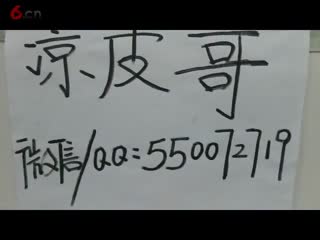 6.cn
凉皮哥
微信/QQ=550072719